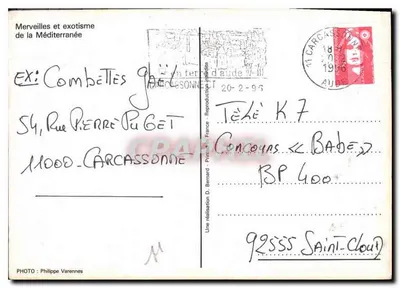 Merveilles et exotisme
de la Méditerranée
11 CARCASSONNE
18H
1996
AUDE
en terre d'aude
20-2-96
EX: Combettes Gaël
54, Rue PIERRE PUGET
11000 - CARCASSONNE
TÉLÉ K7
Concours « BABE »
BP 400
92555 SAINT-CLOUD
11
PHOTO : Philippe Varennes
Une réalisation D. Bernard
France - Reproduction interdite